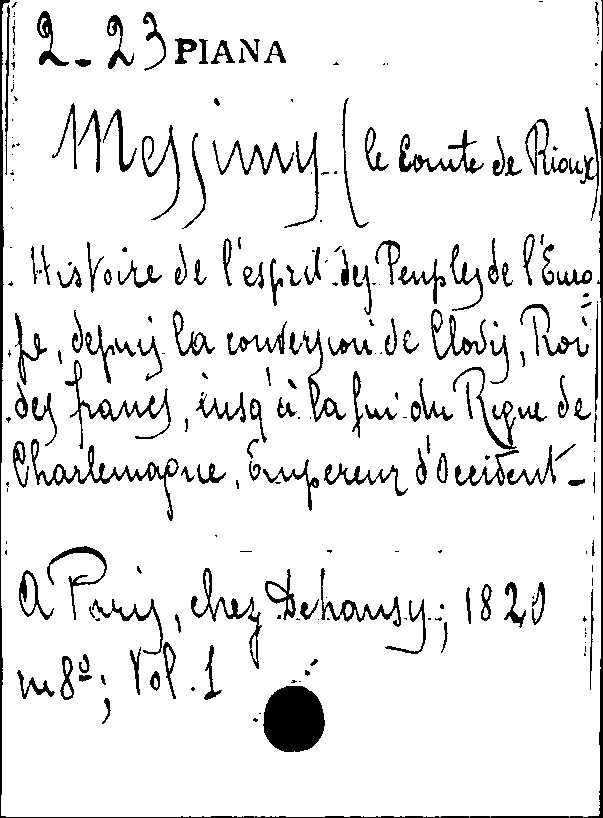 2-23 PIANA
Messimy (le Comte de Rioux)
Histoire de l'esprit des Peuples de l'Euro=
pe, depuis la conversion de Clovis, Roi
des francs, iusq'à la fin du Regne de
Charlemagne, Empereur d'Occident-
A Paris, chez Dehansy; 1820
in 8º; Vol. 1